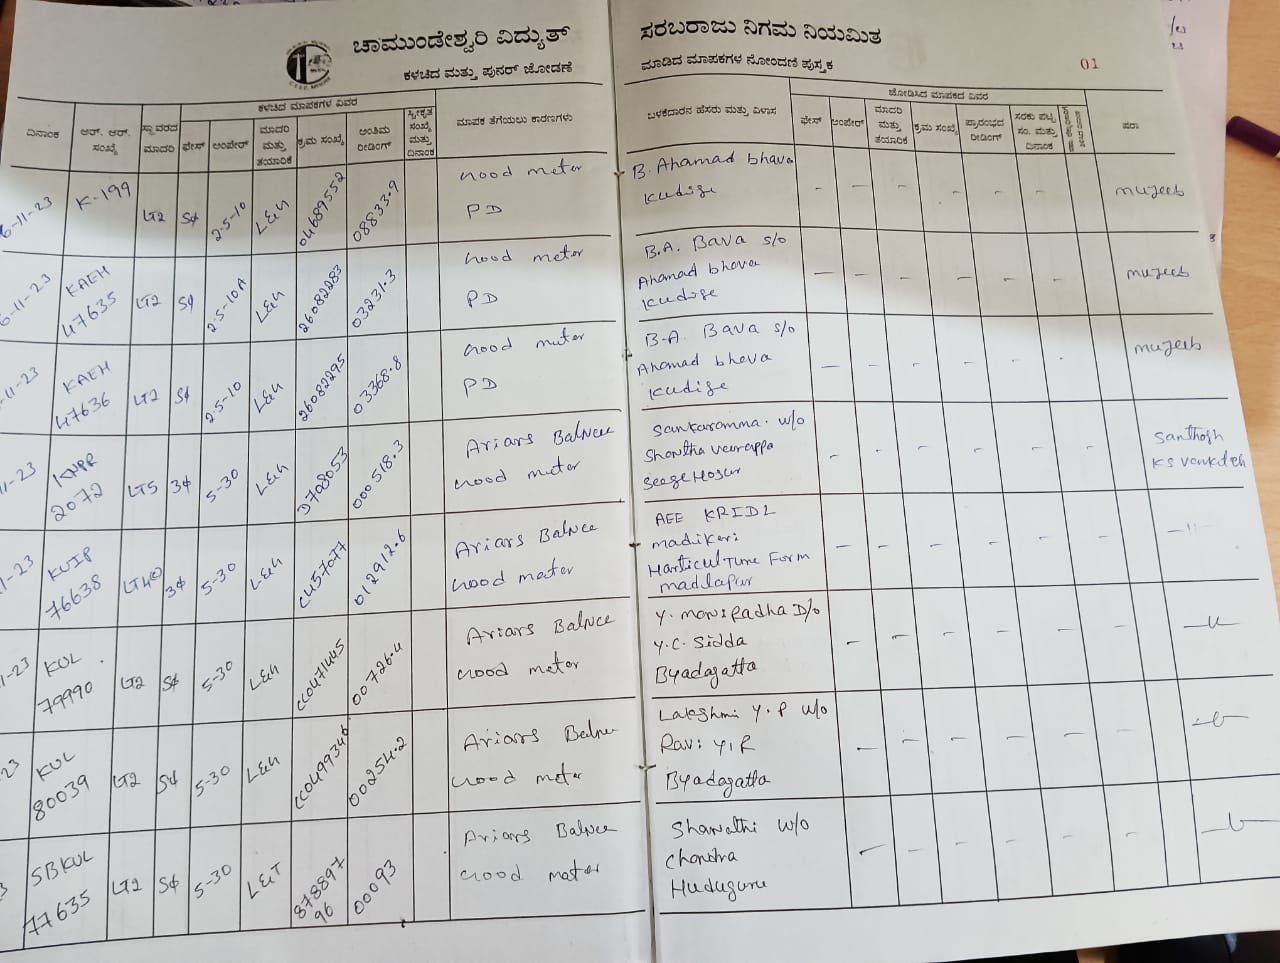 ಚಾಮುಂಡೇಶ್ವರಿ ವಿದ್ಯುತ್ ಸರಬರಾಜು ನಿಗಮ ನಿಯಮಿತ
ಕಳಚಿದ ಮತ್ತು ಪುನರ್ ಜೋಡಣೆ ಮಾಡಿದ ಮಾಪಕಗಳ ನೋಂದಣಿ ಪುಸ್ತಕ
01
ಕಳಚಿದ ಮಾಪಕಗಳ ವಿವರ ಜೋಡಿಸಿದ ಮಾಪಕದ ವಿವರ
ದಿನಾಂಕ ಆರ್. ಆರ್. ಸಂಖ್ಯೆ ಸ್ಥಾವರದ ಮಾದರಿ ಫೇಸ್ ಆಂಪೇರ್ ಮಾದರಿ ಮತ್ತು ತಯಾರಿಕೆ ಕ್ರಮ ಸಂಖ್ಯೆ ಅಂತಿಮ ರೀಡಿಂಗ್ ಸ್ವೀಕೃತ ಸಂಖ್ಯೆ ಮತ್ತು ದಿನಾಂಕ ಮಾಪಕ ತೆಗೆಯಲು ಕಾರಣಗಳು ಬಳಕೆದಾರನ ಹೆಸರು ಮತ್ತು ವಿಳಾಸ ಫೇಸ್ ಆಂಪೇರ್ ಮಾದರಿ ಮತ್ತು ತಯಾರಿಕೆ ಕ್ರಮ ಸಂಖ್ಯೆ ಪ್ರಾರಂಭದ ರೀಡಿಂಗ್ ಸರಕು ಪಟ್ಟಿ ಸಂ. ಮತ್ತು ದಿನಾಂಕ ಷರಾ
6-11-23 K-199 LT2 Sφ 2.5-10 L&G 04689552 08833.9 Good meter PD B. Ahamad bhava Kudige - - - - - - mujeeb
6-11-23 KAEH 47635 LT2 Sφ 2.5-10A L&G 26082283 03231.3 Good meter PD B.A. Bava s/o Ahamad bhava Kudige - - - - - - mujeeb
-11-23 KAEH 47636 LT2 Sφ 2.5-10 L&G 26082295 03368.8 Good meter PD B.A. Bava s/o Ahamad bhava Kudige - - - - - - mujeeb
11-23 2072 LT5 3φ 5-30 L&G D708053 000518.3 Ariars Balnce Good meter Sankaramma w/o Shantha veerappa Seege Hosur - - - - - - Santhosh KS Venkatesh
1-23 KUIP 76638 3φ 5-30 L&G C457077 012912.6 Ariars Balnce Good meter AEE KRIDL madikeri Harticulture Form madlapur - - - - - - -11-
1-23 KUL 79990 LT2 Sφ 5-30 L&G CC0471445 00726.4 Ariars Balnce Good meter Y. moniradha D/o Y.C. Sidda Byadagatta - - - - - -
23 KUL 80039 LT2 Sφ 5-30 L&G CC0499346 00254.2 Ariars Balnce Good meter Lakshmi Y.P w/o Ravi Y.R Byadagatta - - - - - -
3 SBKUL 77635 LT2 Sφ 5-30 L&T 87889796 00093 Ariars Balnce Good meter Sharvathi w/o Chandra Huduguru - - - - - -